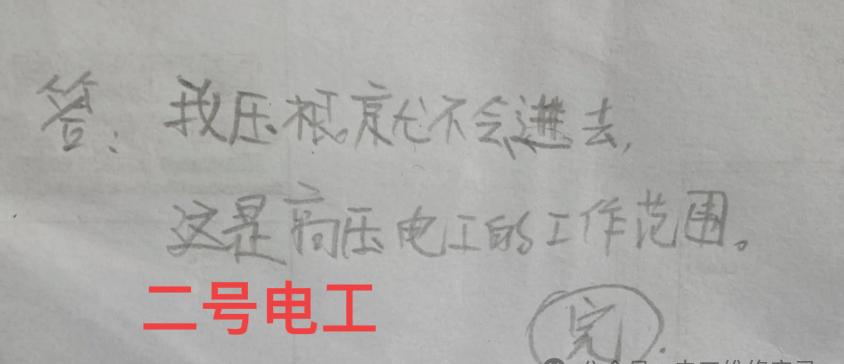 答：我压根就不会进去，
这是高压电工的工作范围。
二号电工
完